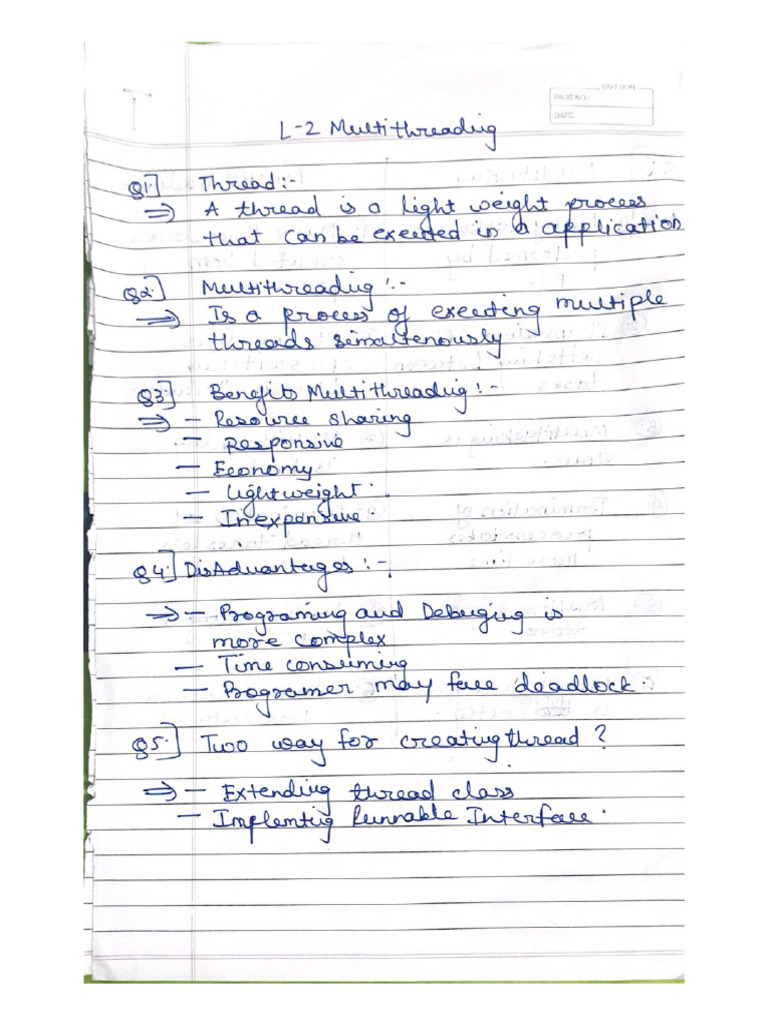 T
SAFFRON
PAGE NO.:
DATE:
L-2 Multithreading
Q1.] Thread :-
⇒ A thread is a light weight process
that can be exected in a application
Q2.] Multithreading :-
⇒ Is a process of exeeding multiple
threads simaltenously
Q3.] Benefits Multithreading :-
⇒ - Resource sharing
- Responsive
- Economy
- lightweight.
- Inexpansive
Q4.] DisAdvantages :-
⇒ - Programing and Debuging is
more complex
- Time consuming
- Programer may face deadlock.
Q5.] Two way for creating thread ?
⇒ - Extending thread class
- Implemtig Runnable Interface.